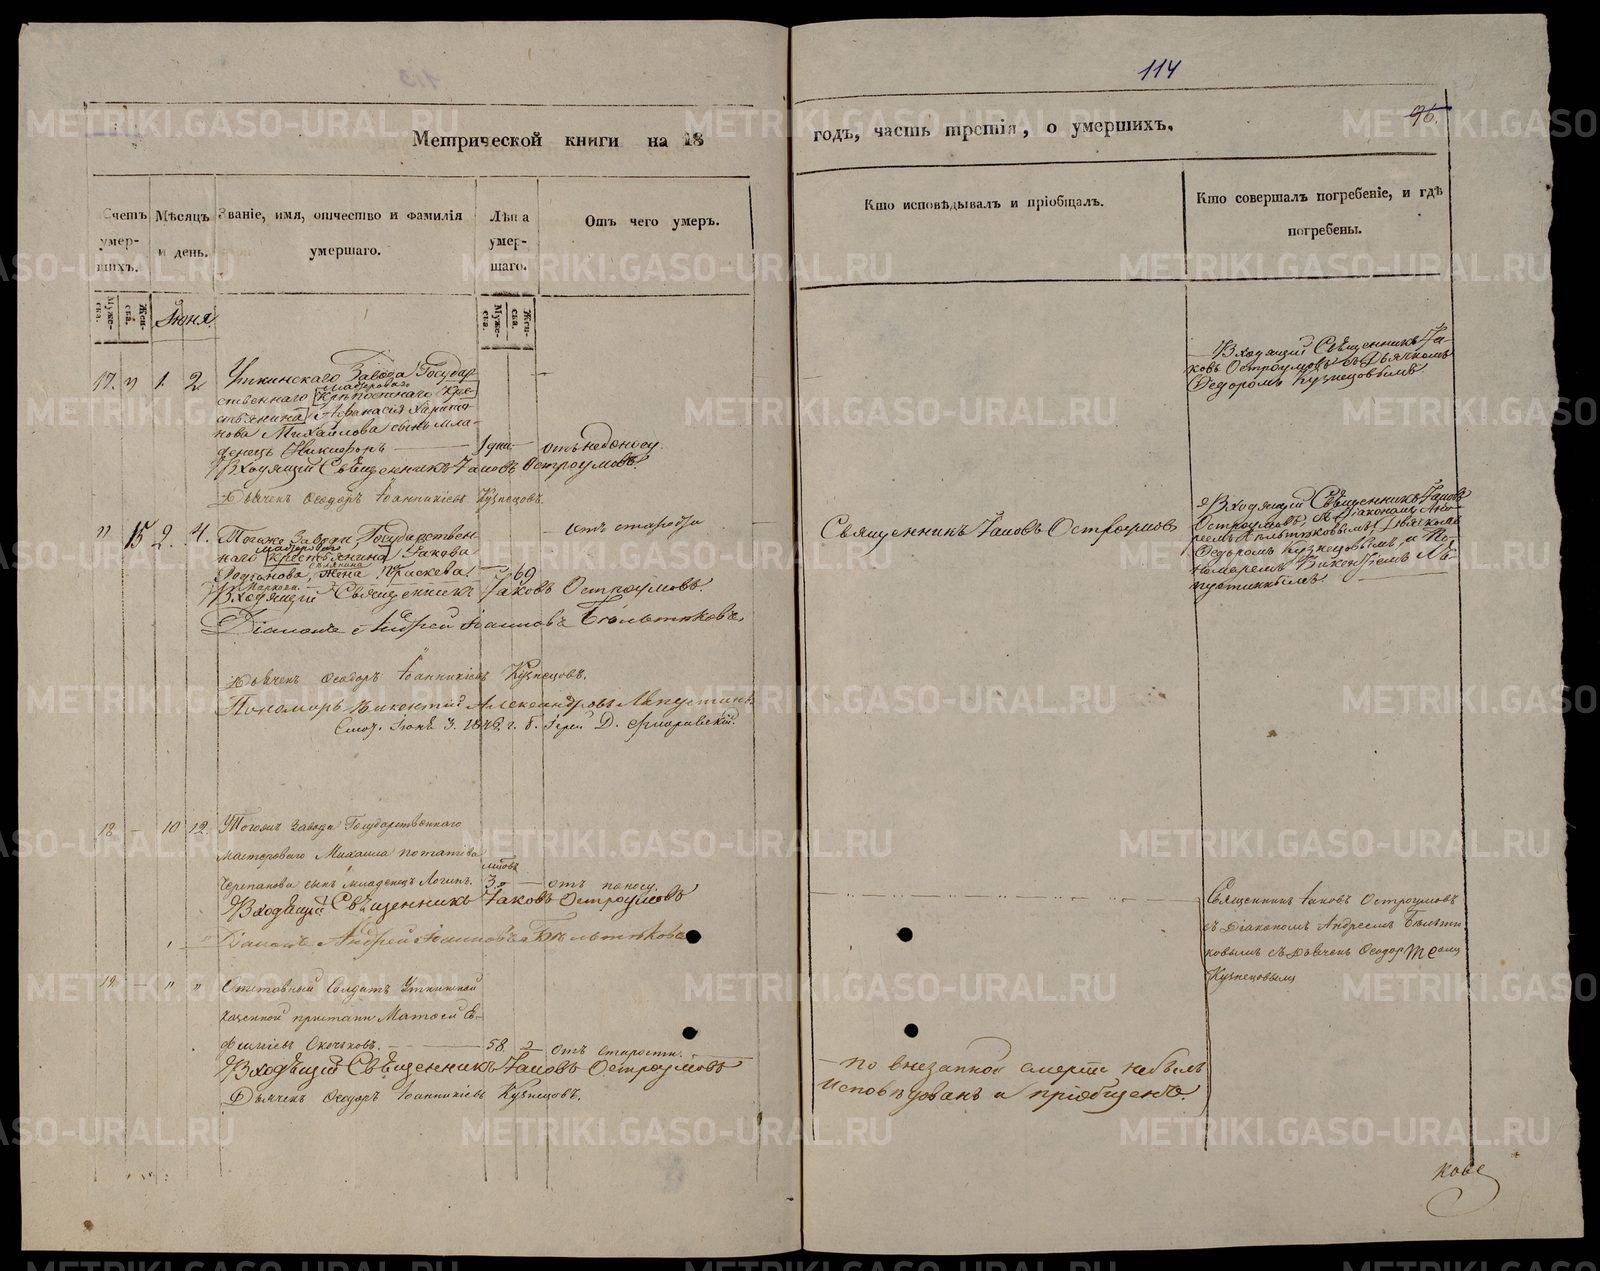 114
96.
Метрической книги на 18
годъ, часть третія, о умершихъ.
Счетъ умер-шихъ.
Мѣсяцъ и день.
Званіе, имя, отчество и фамилія умершаго.
Лѣта умер-шаго.
Отъ чего умеръ.
Кто исповѣдывалъ и пріобщалъ.
Кто совершалъ погребеніе, и гдѣ погребены.
Муже-ска.
Жен-ска.
Муже-ска.
Жен-ска.
Іюня
17. " 1. 2
Уткинскаго Завода Государ
ственнаго Крѣпостнаго Кре
мастероваго
стьянина Афанасія Харито
нова Михайлова сынъ мла-
денецъ Никифоръ 1 дня отъ недоносу.
Входящій Священникъ Іаковъ Остроумовъ.
Дьячекъ Ѳеодоръ Іоанникіевъ Кузнецовъ.
Входящий Священникъ Іа-
ковъ Остроумовъ съ Дьячкомъ
Ѳедоромъ Кузнецовымъ
" 15 2. 4.
Тогоже Завода Государствен
наго Крестьянина Іакова
Родіонова, жена Параскева. 69 отъ старости
Входящій Священникъ Іаковъ Остроумовъ.
Діаконъ Андрей Іоанновъ Бѣльтюковъ.
Дьячекъ Ѳеодоръ Іоанникіевъ Кузнецовъ.
Пономарь Викентій Александровъ Лапустинъ
Священникъ Іаковъ Остроумов
Входящій Священникъ Іаковъ
Остроумовъ, съ Діакономъ Анд-
реемъ Бѣльтюковымъ, Дьячкомъ
Ѳедоромъ Кузнецовымъ и По-
номаремъ Викентіемъ Ла-
пустинымъ
18 - 10 12.
Тогожъ завода Государственнаго
мастероваго Михаила Потапова
Черепанова сынъ младенецъ Логинъ. 3. отъ поносу.
Входящій Священникъ Іаковъ Остроумовъ
Діаконъ Андрей Іоанновъ Бѣльтюковъ
Священникъ Іаковъ Остроумовъ
съ Діакономъ Андреемъ Бѣльтю
ковымъ съ Дьячкомъ Ѳеодоромъ
Кузнецовымъ
19 - " "
Отставный Солдатъ Уткинской
казенной пристани Матвей Е-
фимѣевъ 58 отъ старости.
Входящій Священникъ Іаковъ Остроумовъ
Дьячекъ Ѳеодоръ Іоанникіевъ Кузнецовъ.
по внезапной смерти небылъ
исповѣдованъ и пріобщенъ.
METRIKI.GASO-URAL.RU